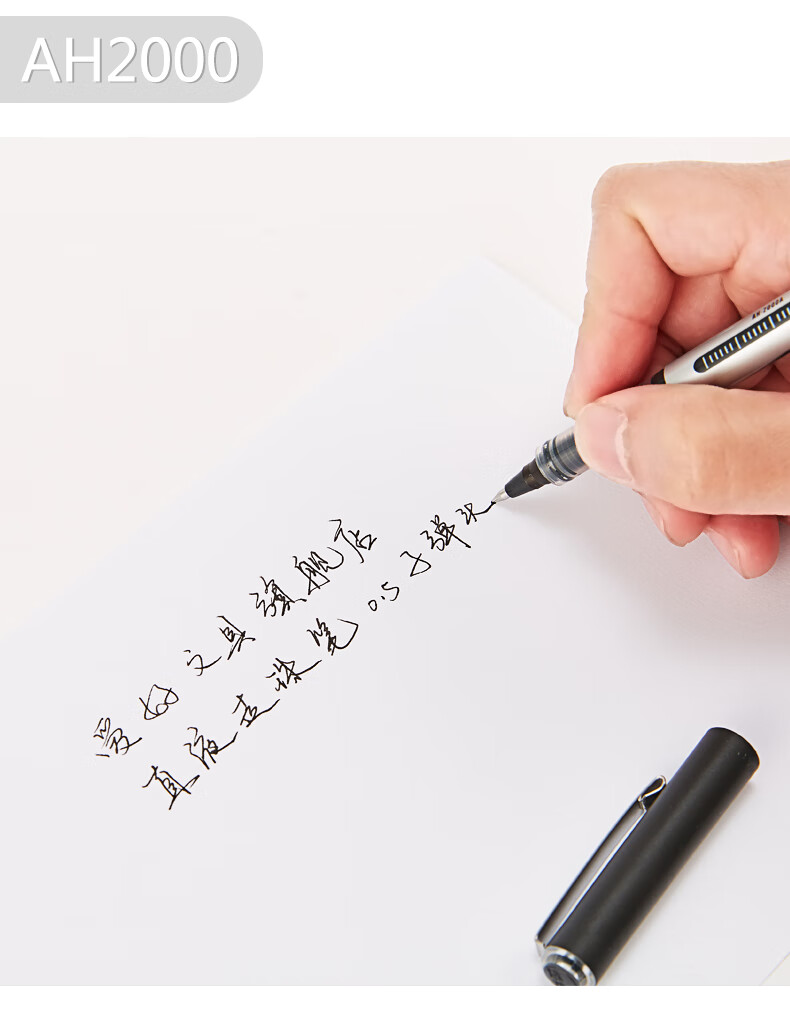 AH2000
AH-2000A
爱好文具旗舰店
直液走珠笔 0.5子弹头